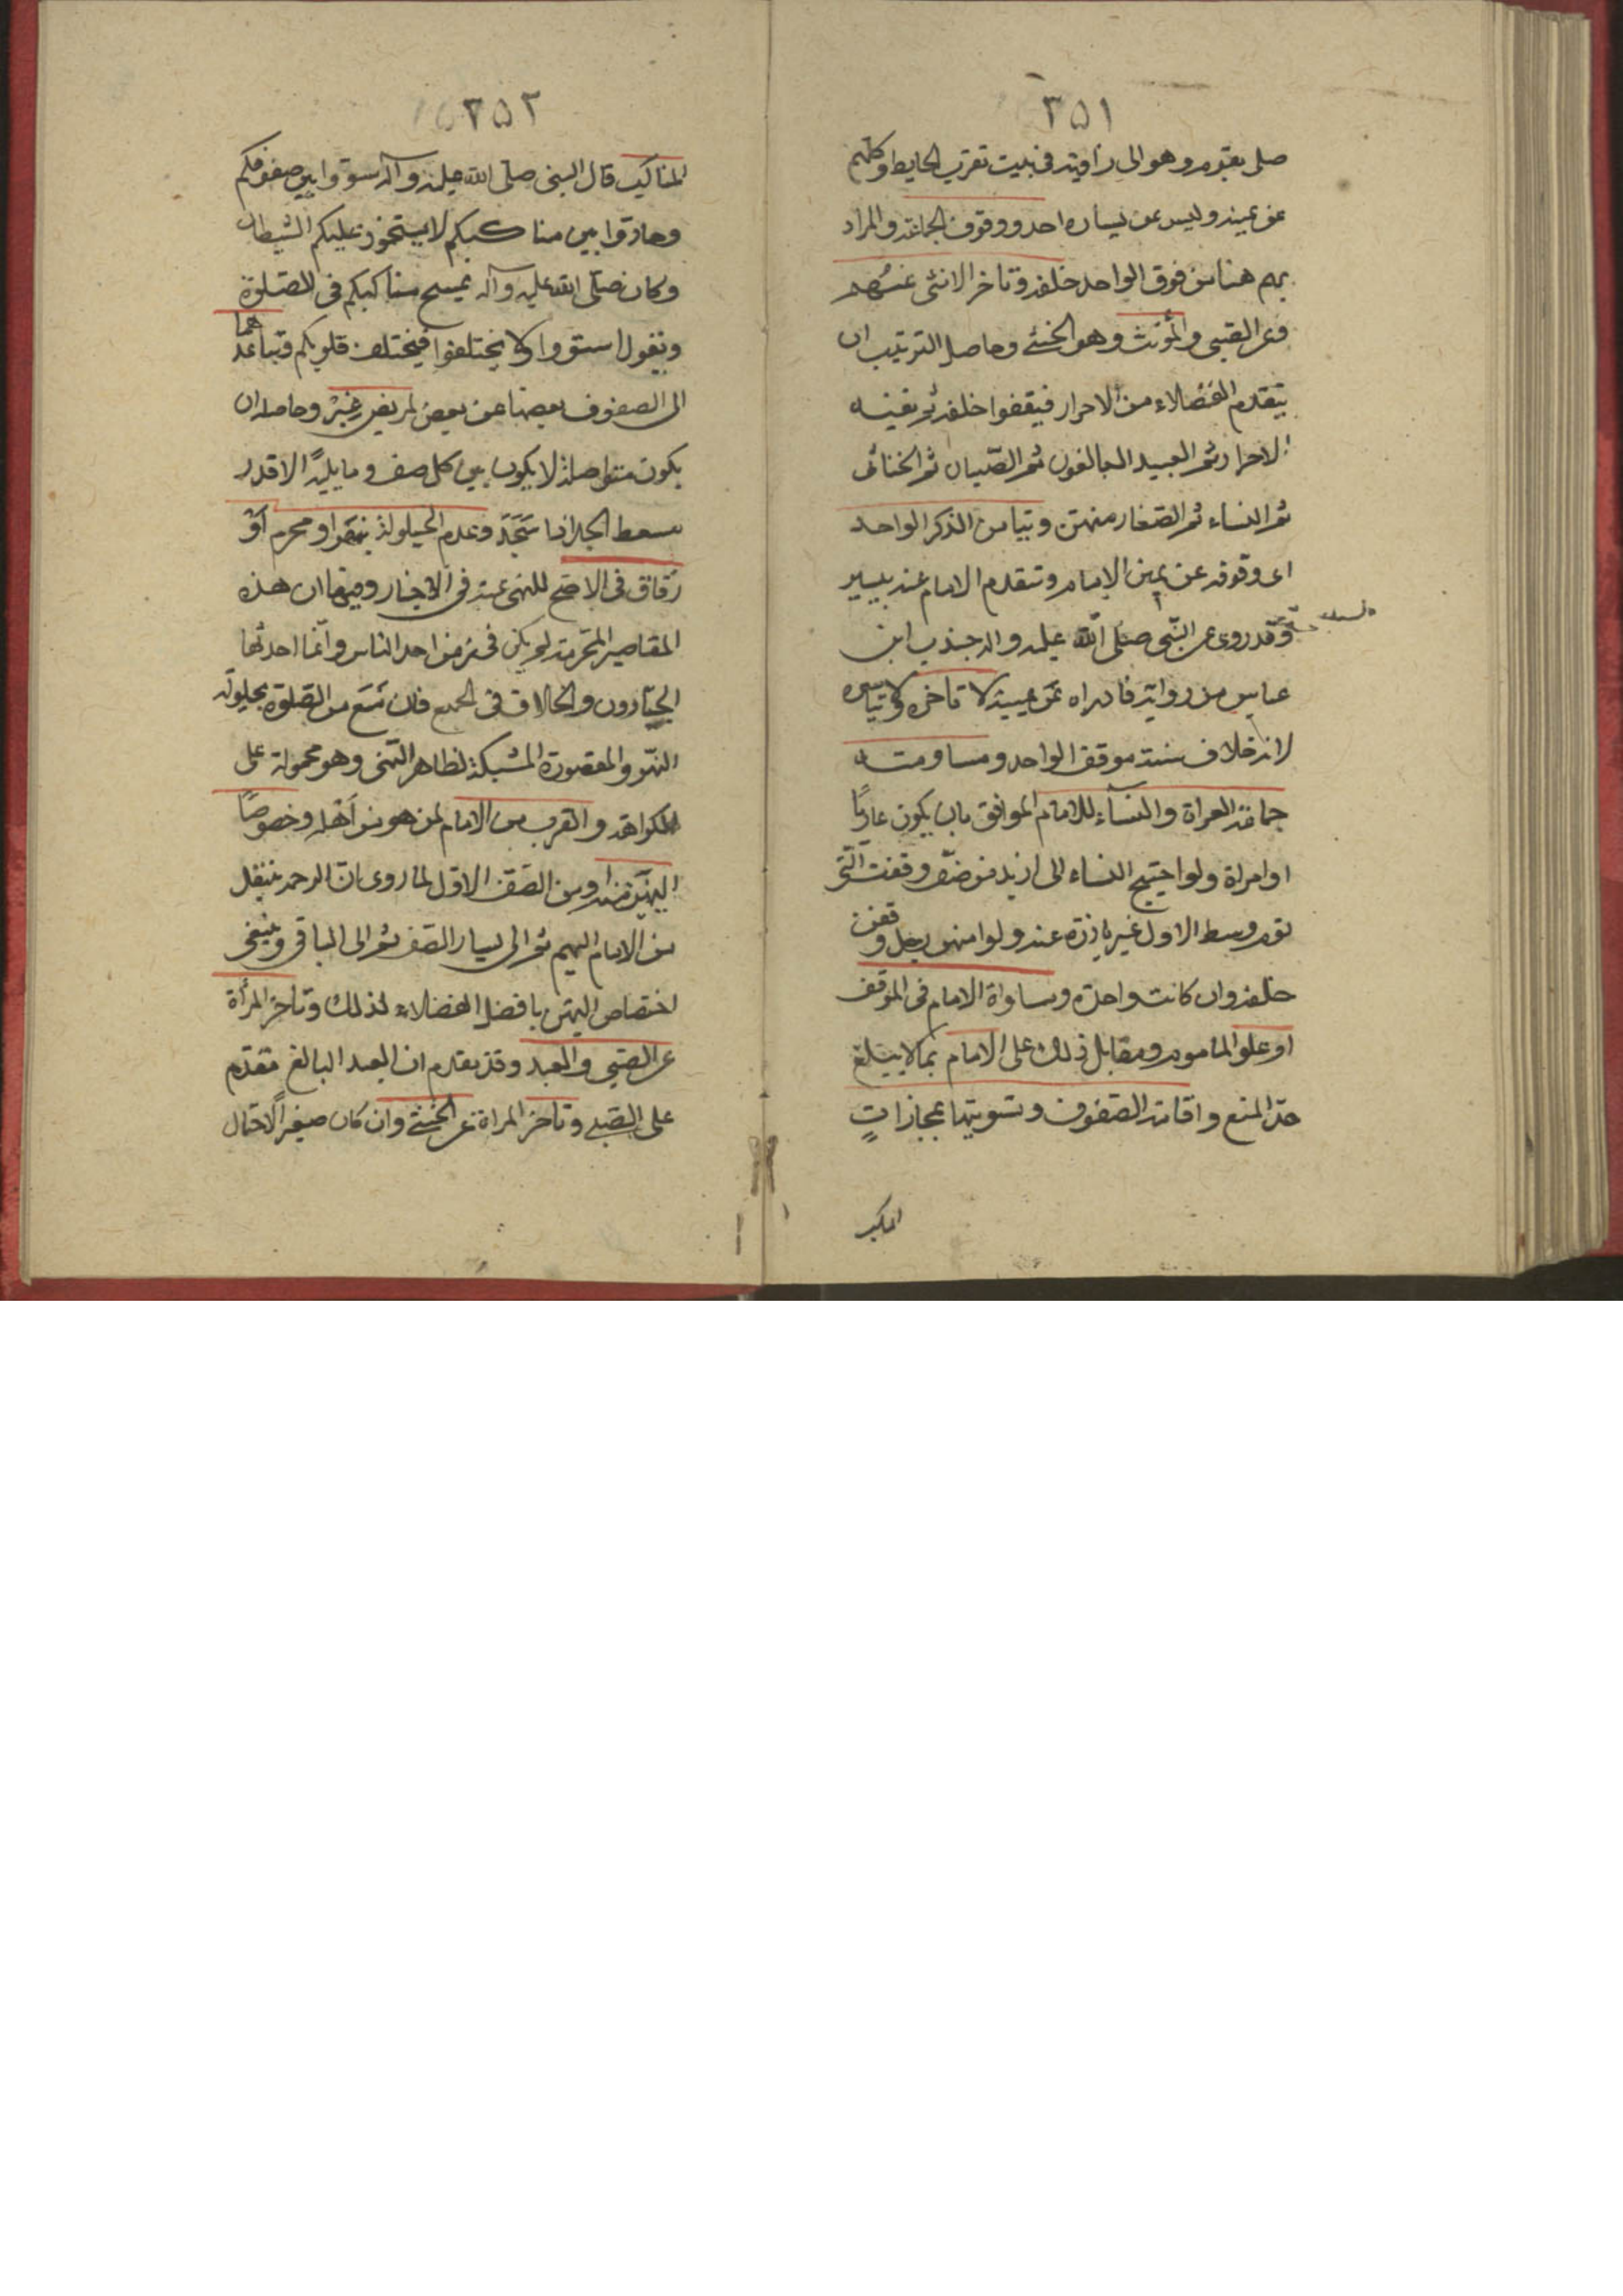 ٣٥١
صلى بقوم وهو الى زاوية فى بيت تقرب الحايط وكلهم
عن يمينه وليس عن يساره احد ووقوف الجماعة والمراد
بهم هنا من فوق الواحد خلفه وتاخر الانثى عنهم
وعن الصبى والمؤنث وهو الخنثى وحاصل الترتيب ان
يتقدم الفضلاء من الاحرار فيقفوا خلفه ثم بقية
الاحرار ثم العبيد البالغون ثم الصبيان ثم الخناثى
ثم النساء ثم الصغار منهن وتيامن الذكر الواحد
اى وقوفه عن يمين الامام وتقدم الامام عنه بيسير
وقد روى عن النبى صلى الله عليه واله جذب ابن
عباس من روايه فاداره عن يمينه لا تاخره ولا تياسره
لانه خلاف سنة موقف الواحد ومساومته
جماعة العراة والنساء للامام الموافق بان يكون عاريا
او امراة ولو احتيج النساء الى ازيد من صف وقفت التى
تؤم وسط الاول غير بارزة عنه ولو امهن رجل وقفن
خلفه وان كانت واحدة ومساواة الامام فى الموقف
او علو الماموم ومقابل ذلك على الامام بما لا يبلغ
حد المنع واقامة الصفوف وتسويتها بمجازات
المناكب
٣٥٢
المناكب قال النبى صلى الله عليه وآله سووا بين صفوفكم
وحاذوا بين مناكبكم لا يستحوذ عليكم الشيطان
وكان صلى الله عليه وآله يمسح مناكبكم فى الصلوة
ويقول استووا ولا يختلفوا فيختلف قلوبكم وتباعد هما
الى الصفوف بعضها عن بعض لمريض غيره وحاصله ان
يكون متواصلة لا يكون بين كل صف وما يليه الا قدر
مسقط الجل اذا سجد وعدم الحيلولة بنهر او محرم او
زقاق فى الاصح للنهى عنه فى الاخبار وفيها ان هذه
المقاصير المحرمة لم يكن فى زمن احد الناس وانما احدثها
الجبارون والخلاف فى الجميع فان منع من الصلوة بحيلولة
النهر والمقصورة المشبكة لظاهر النهى وهو محمولة على
الكراهة والقرب من الامام لمن هو من اهله وخصوصا
اليمين منه ومن الصف الاول لما روى ان الرحمة تنتقل
من الامام اليهم ثم الى يسار الصف ثم الى الباقى وينبغى
اختصاص اليمين بافضل الفضلاء لذلك وتاخر المرأة
عن الصبى والعبد وقد تقدم ان العبد البالغ متقدم
على الصبى وتاخر المراة عن الخنثى وان كان صغيرا لاحتمال